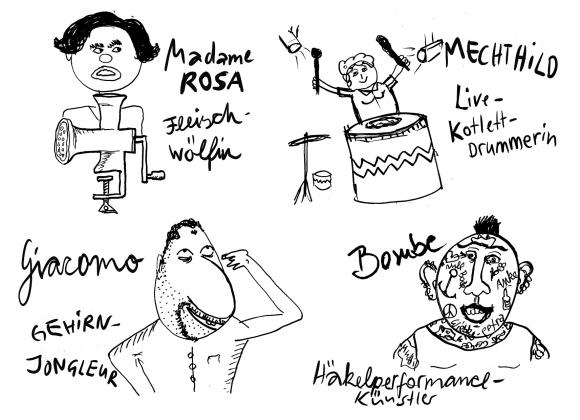 Madame
ROSA
Fleisch-
wölfin
MECHTHILD
Live-
Kotlett-
Drummerin
Giacomo
GEHIRN-
JONGLEUR
Bombe
Anke
Häkelperformance-
Künstler